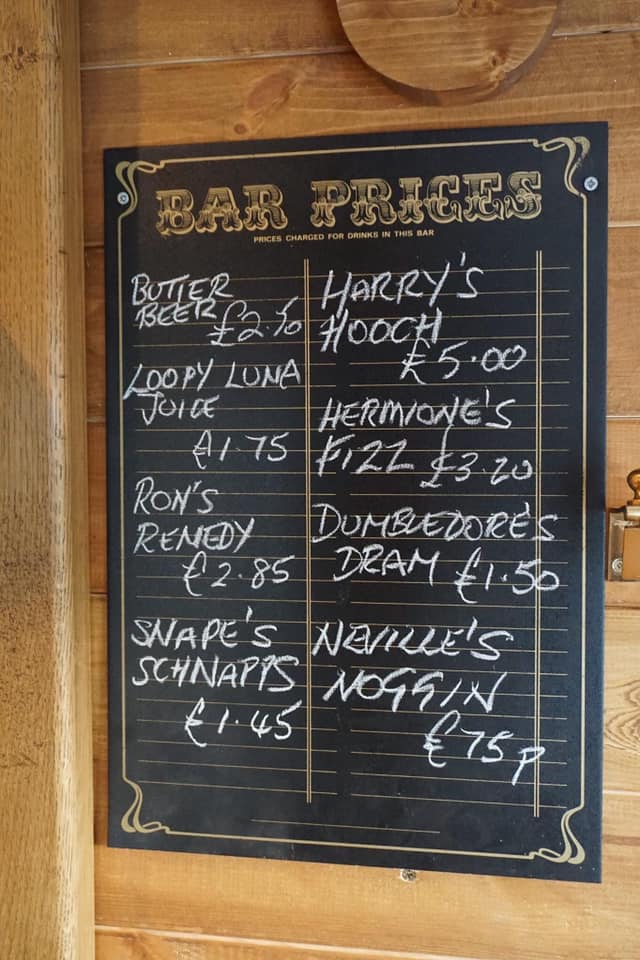 BAR PRICES
PRICES CHARGED FOR DRINKS IN THIS BAR
BUTTER
BEER
£2.10
LOOPY LUNA
JUICE
£1.75
RON'S
REMEDY
£2.85
SNAPE'S
SCHNAPPS
£1.45
HARRY'S
HOOCH
£5.00
HERMIONE'S
FIZZ £3.20
DUMBLEDORE'S
DRAM £1.50
NEVILLE'S
NOGGIN
£75p